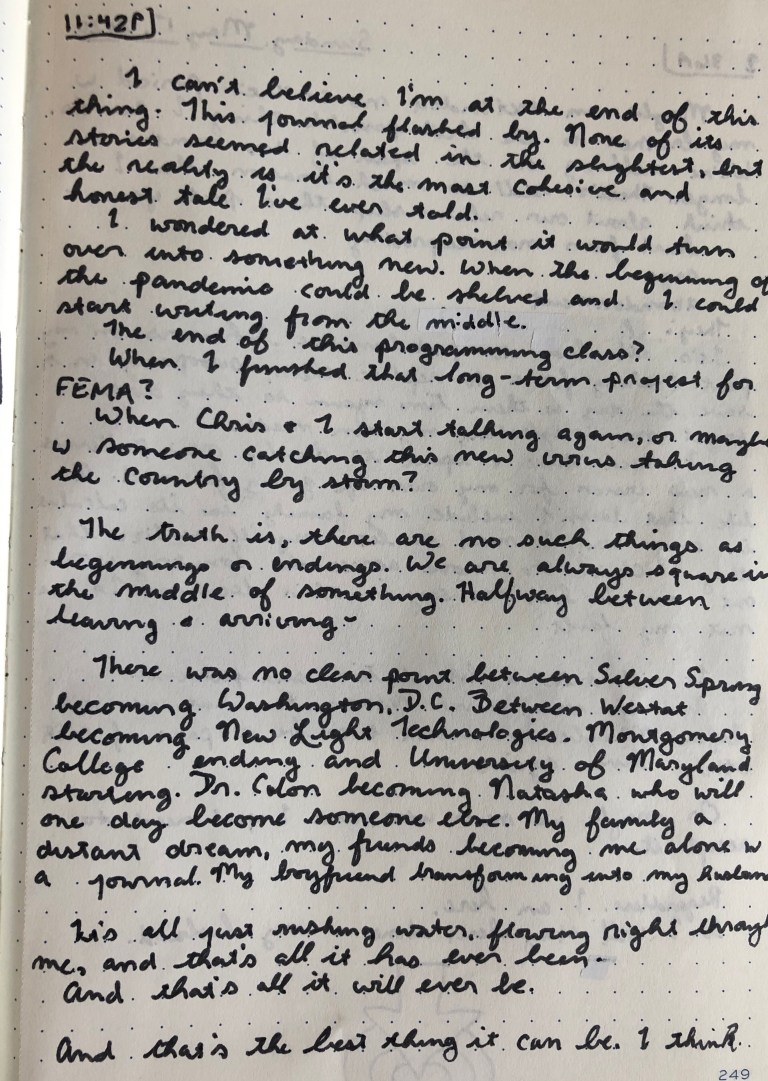 11:42P
I can't believe I'm at the end of this
thing. This journal flashed by. None of its
stories seemed related in the slightest, but
the reality is it's the most cohesive and
honest tale I've ever told.
I wondered at what point it would turn
over into something new. When the beginning of
the pandemic could be shelved and I could
start writing from the middle.
The end of this programming class?
When I finished that long-term project for
FEMA?
When Chris & I start talking again, or maybe
w someone catching this new virus taking
the country by storm?
The truth is, there are no such things as
beginnings or endings. We are always square in
the middle of something. Halfway between
leaving & arriving-
There was no clear point between Silver Spring
becoming Washington, D.C. Between Westat
becoming New Light Technologies. Montgomery
College ending and University of Maryland
starting. Dr. Colon becoming Natasha who will
one day become someone else. My family a
distant dream, my friends becoming me alone w
a journal. My boyfriend transforming into my husban
It's all just rushing water, flowing right throug
me, and that's all it has ever been.
And that's all it will ever be.
And that's the best thing it can be. I think.
249